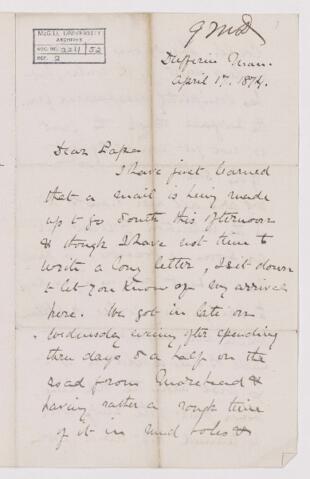 GMD
McGILL UNIVERSITY
ARCHIVES
ACC. NO. 2211/52
REF. 2
Dufferin Man.
April 17. 1874.
Dear Papa
I have just learned
that a mail is being made
up to go South this afternoon
& though I have not time to
write a long letter, I sit down
to let you know of my arrival
here. We got in late on
Wednesday evening after spending
three days & a half on the
road from Moorhead &
having rather a rough time
of it in mud holes &